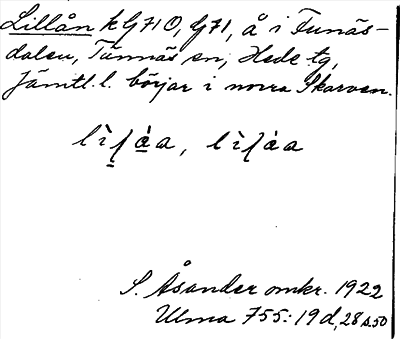 Lillån k G71O, G71, å i Funäs-
dalen, Tännäs sn, Hede tg,
Jämtl. l. börjar i norra Skarven.
S. Åsander omkr. 1922
Ulma 755: 19 d, 28 s. 50